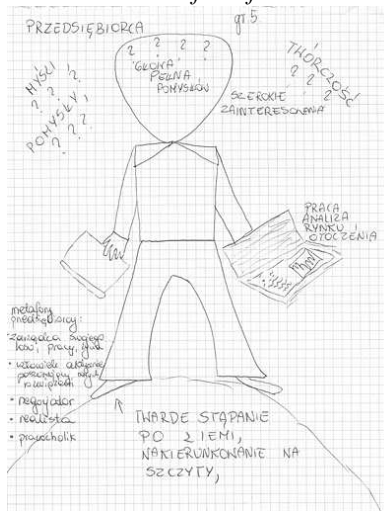 PRZEDSIĘBIORCA
gr 5
? ? ? ?
"GŁOWA"
PEŁNA
POMYSŁÓW
MYŚLI
? ? ?
POMYSŁY,
? ? ?
TWÓRCZOŚĆ
? ? ?
SZEROKIE
ZAINTERESOWANIA
PRACA
ANALIZA
RYNKU I
OTOCZENIA
metafory
przedsiębiorcy:
• zarządca swojego
losu, pracy, życia
• człowiek aktywnie
poszukujący
rozwiązań
• negocjator
• realista
• pracoholik
TWARDE STĄPANIE
PO ZIEMI,
NAKIERUNKOWANIE NA
SZCZYTY,